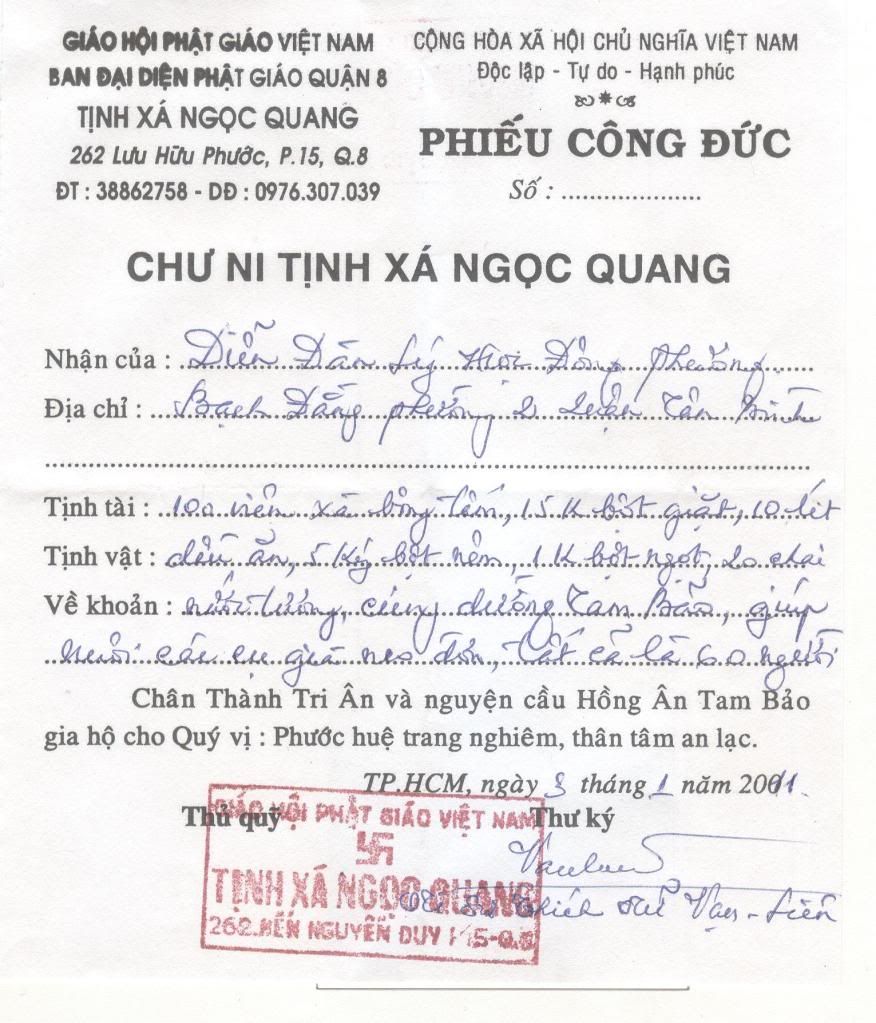 GIÁO HỘI PHẬT GIÁO VIỆT NAM
BAN ĐẠI DIỆN PHẬT GIÁO QUẬN 8
TỊNH XÁ NGỌC QUANG
262 Lưu Hữu Phước, P.15, Q.8
ĐT : 38862758 - DĐ : 0976.307.039
CỘNG HÒA XÃ HỘI CHỦ NGHĨA VIỆT NAM
Độc lập - Tự do - Hạnh phúc
PHIẾU CÔNG ĐỨC
Số : .....................
CHƯ NI TỊNH XÁ NGỌC QUANG
Nhận của : Diễn Đàn Lý Học Đông Phương
Địa chỉ : Bạch Đằng phường 2 Quận Tân Bình
Tịnh tài : 100 viên xà bông tắm, 15 K bột giặt, 10 lít
Tịnh vật : dầu ăn, 5 Ký bột nêm, 1 K bột ngọt, 20 chai
Về khoản : nước tương, cúng dường Tam Bảo, giúp
nuôi các cụ già neo đơn, tất cả là 60 người
Chân Thành Tri Ân và nguyện cầu Hồng Ân Tam Bảo
gia hộ cho Quý vị : Phước huệ trang nghiêm, thân tâm an lạc.
TP.HCM, ngày 3 tháng 1 năm 2011.
Thủ quỹ
Thư ký
GIÁO HỘI PHẬT GIÁO VIỆT NAM
TỊNH XÁ NGỌC QUANG
262.BẾN NGUYỄN DUY P15-Q.8
Thích Nữ Vạn-Liên